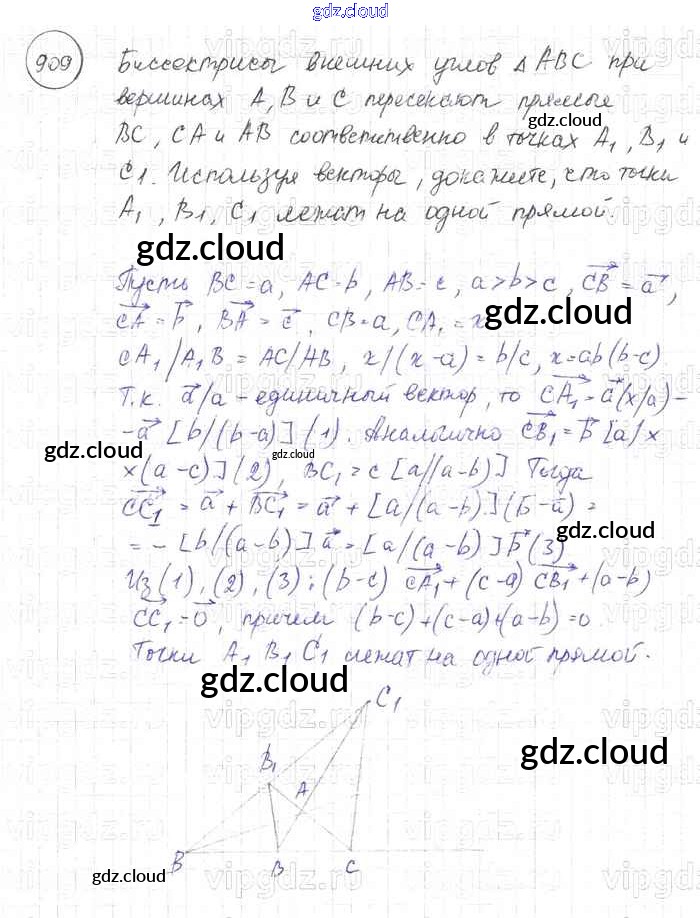 gdz.cloud
909
Биссектрисы внешних углов △ABC при
вершинах A, B и C пересекают прямые
gdz.cloud
BC, CA и AB соответственно в точках A₁, B₁ и
C1. Используя векторы, докажите, что точки
A₁, B₁, C₁ лежат на одной прямой.
gdz.cloud
Пусть BC = a, AC = b, AB = c, a > b > c, CB = a,
gdz.cloud
CA = b, BA = c, CB = a, CA₁ = x
CA₁/A₁B = AC/AB, x/(x-a) = b/c, x = ab(b-c)
Т.к. a/a - единичный вектор, то CA₁ = a(x/a) -
- a [b/(b-a)] (1). Аналогично CB₁ = b [a/x
gdz.cloud
gdz.cloud
x(a-c)] (2), BC₁ = c [a/(a-b)] Тогда
CC₁ = a + BC₁ = a + [a/(a-b)] (b-a) =
gdz.cloud
= - [b/(a-b)] a = [a/(a-b)] b (3)
Из (1), (2), (3): (b-c) CA₁ + (c-a) CB₁ + (a-b)
CC₁ = 0, причем (b-c)+(c-a)+(a-b) = 0
Точки A₁ B₁ C₁ лежат на одной прямой.
gdz.cloud
C₁
gdz.cloud
B₁
A
B
B
C
gdz.cloud